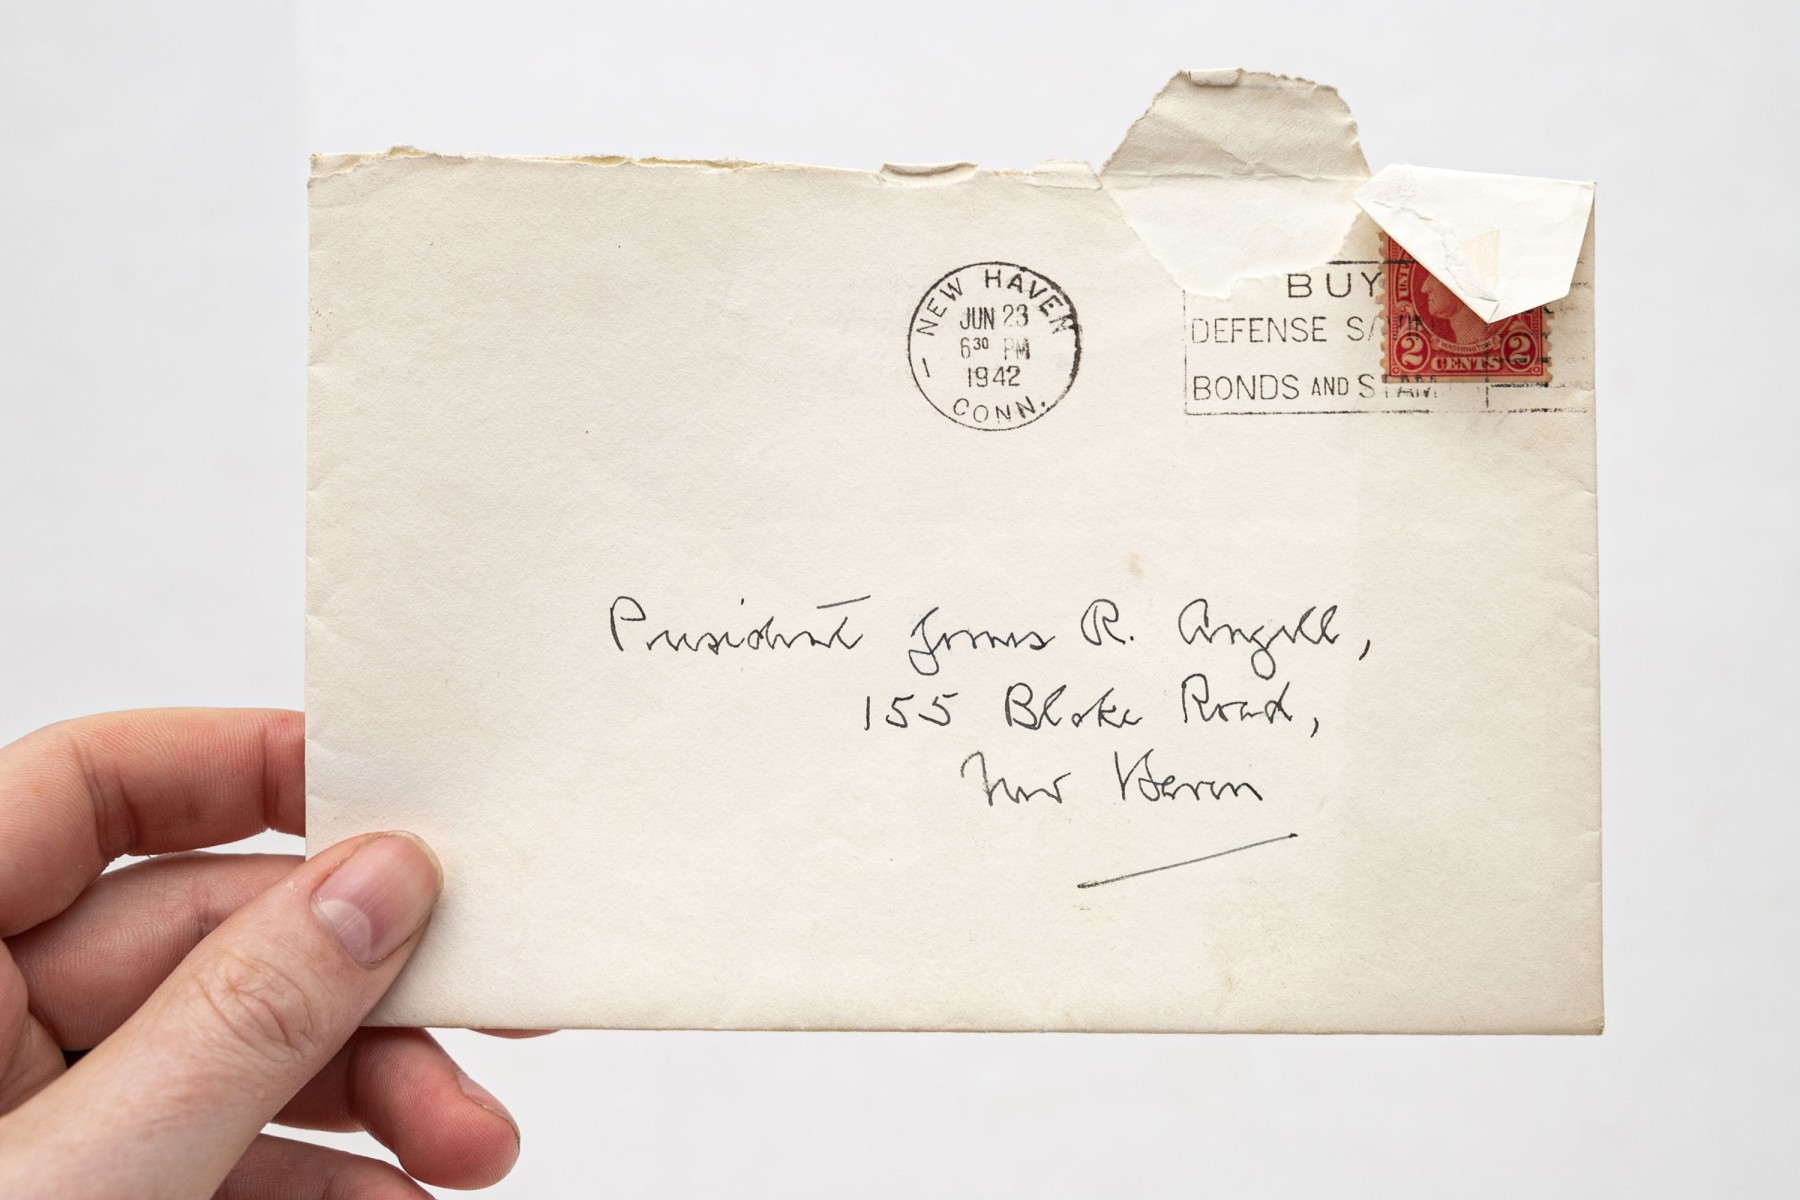 NEW HAVEN
JUN 23
6 30 PM
1942
CONN.
BUY
DEFENSE SAVIN
BONDS AND STAM
UNI
WASHINGTON
2 CENTS 2
President James R. Angell,
155 Blake Road,
New Haven